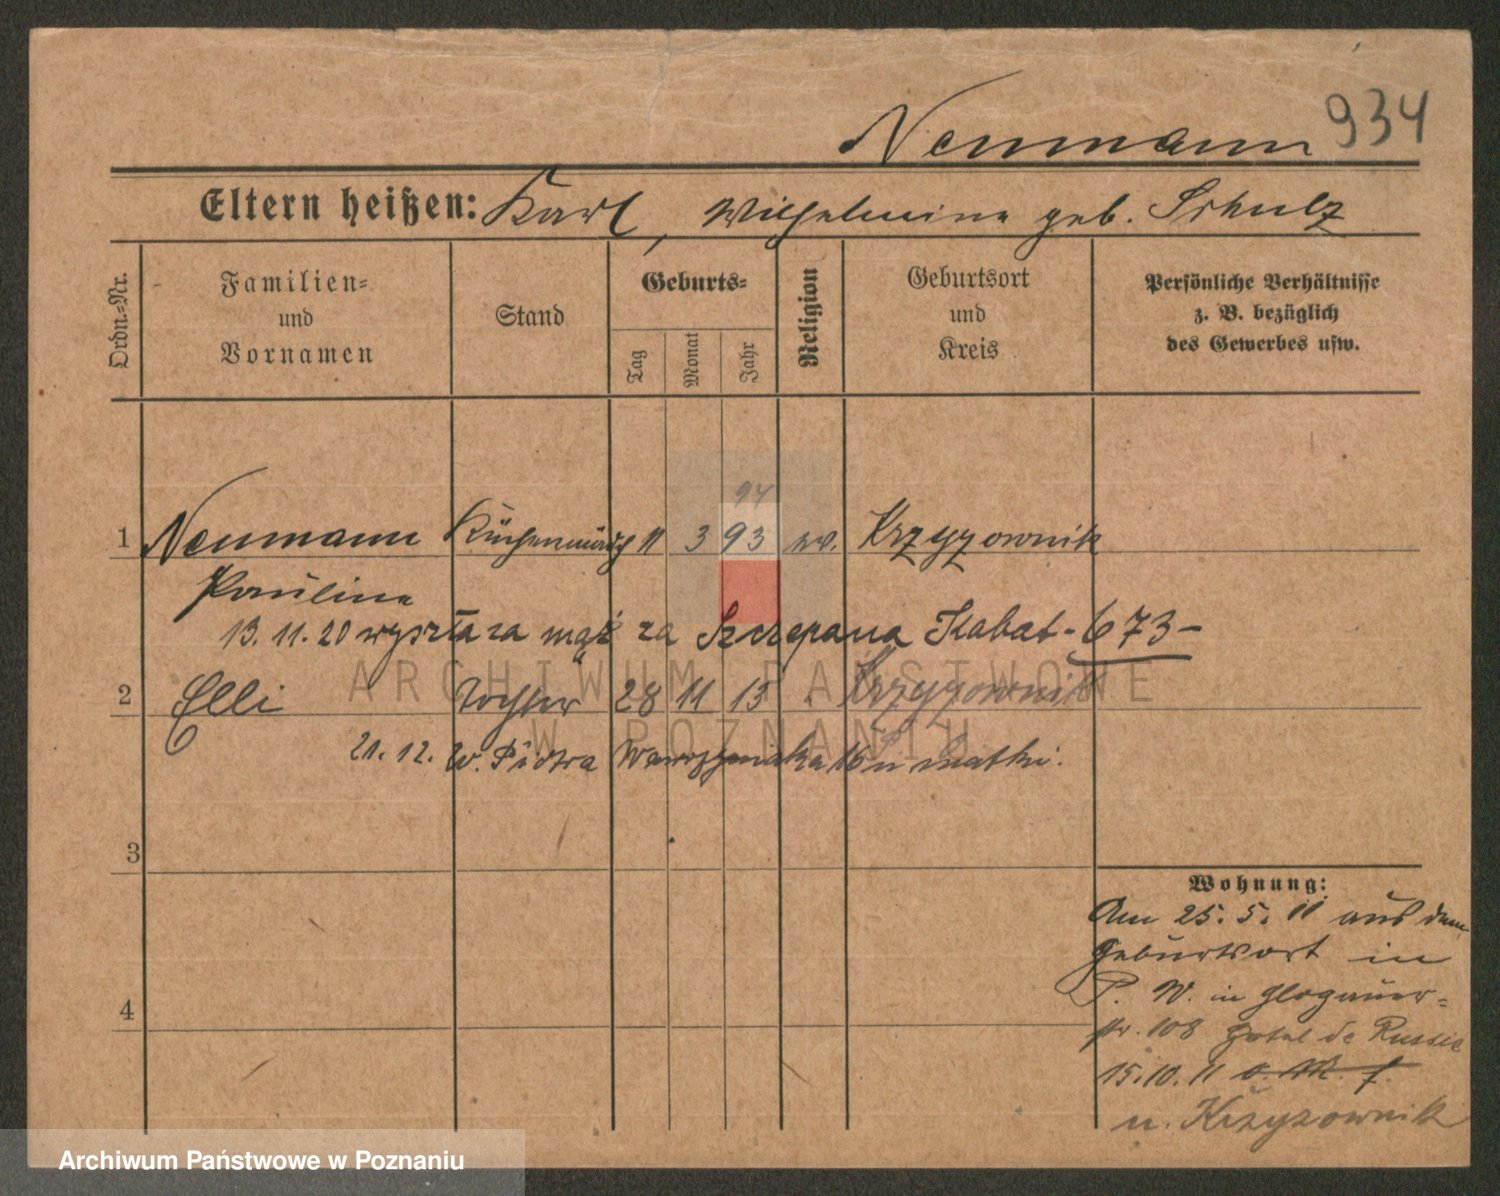 934
Neumann
Eltern heißen: Karl, Wilhelmine geb. Schulz
Ordn.-Nr.
Familien-
und
Vornamen
Stand
Geburts-
Tag
Monat
Jahr
Religion
Geburtsort
und
Kreis
Persönliche Verhältnisse
z. B. bezüglich
des Gewerbes usw.
94
1 Neumann Küchenmädch 11 3 93 ev. Krzyzownik
Pauline
13. 11. 20 wyszła za mąż za Szczepana Kabat - 673 -
ARCHIWUM PAŃSTWOWE
2 Elli Tochter 28 11 13 Krzyzownik
W POZNANIU
21. 12. W. Piotra Wawrzyniaka 16 u matki.
3
4
Wohnung:
Am 25. 5. 11 aus dem
Geburtsort in
P. W. in Glogauer-
str. 108 Hotel de Russie
15. 10. 11
n. Krzyzownik
Archiwum Państwowe w Poznaniu